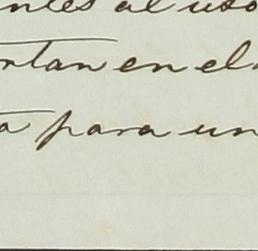 ntes al uso
rtan en el
a para un